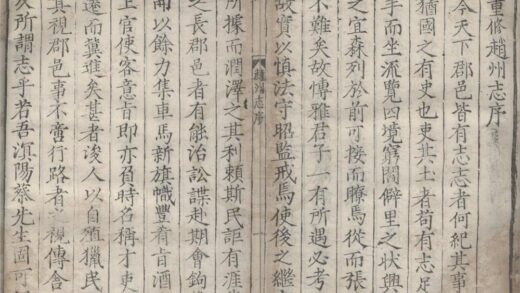 重修趙州志序
今天下郡邑皆有志志者何紀其事
猶國之有史也吏其土者苟有志足
手而坐流覽四境窮閻僻里之狀興
之宜森列於前可接而瞭焉從而張
不難矣故博雅君子一有所遇必考
故實以慎法守昭監戒焉使後之繼
趙州志序
一
所據而潤澤之其利賴斯民詎有涯
之長郡邑者有能治訟諜赴期會鉤
間以餘力集車馬新旗幟豐肴旨酒
上官使客意旨即亦負時名稱才吏
遠而冀進矣甚者浚人以自殖獵民
其視郡邑事不啻行路者視傳舍
所謂志乎若吾滇陽蔡先生固可